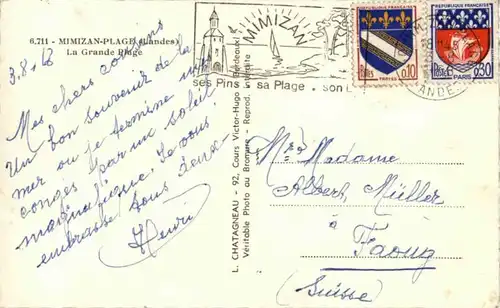 6.711 - MIMIZAN-PLAGE (Landes)
La Grande Plage
3.8.
Mes chers cousins
Un bon souvenir de la
mer ou je termine mes
congés par un soleil
magnifique. Je vous
embrasse tous deux
Henri
L. CHATAGNEAU - 92, Cours Victor-Hugo - Bordeaux
Véritable Photo au Bromure - Reprod. interdite
MIMIZAN
ses Pins sa Plage son
REPUBLIQUE FRANÇAISE
POSTES 0,10
TROYES
REPUBLIQUE FRANÇAISE
POSTES 0,30
PARIS
LANDES
Mr & Madame
Albert Müller
à
Faoug
(Suisse)